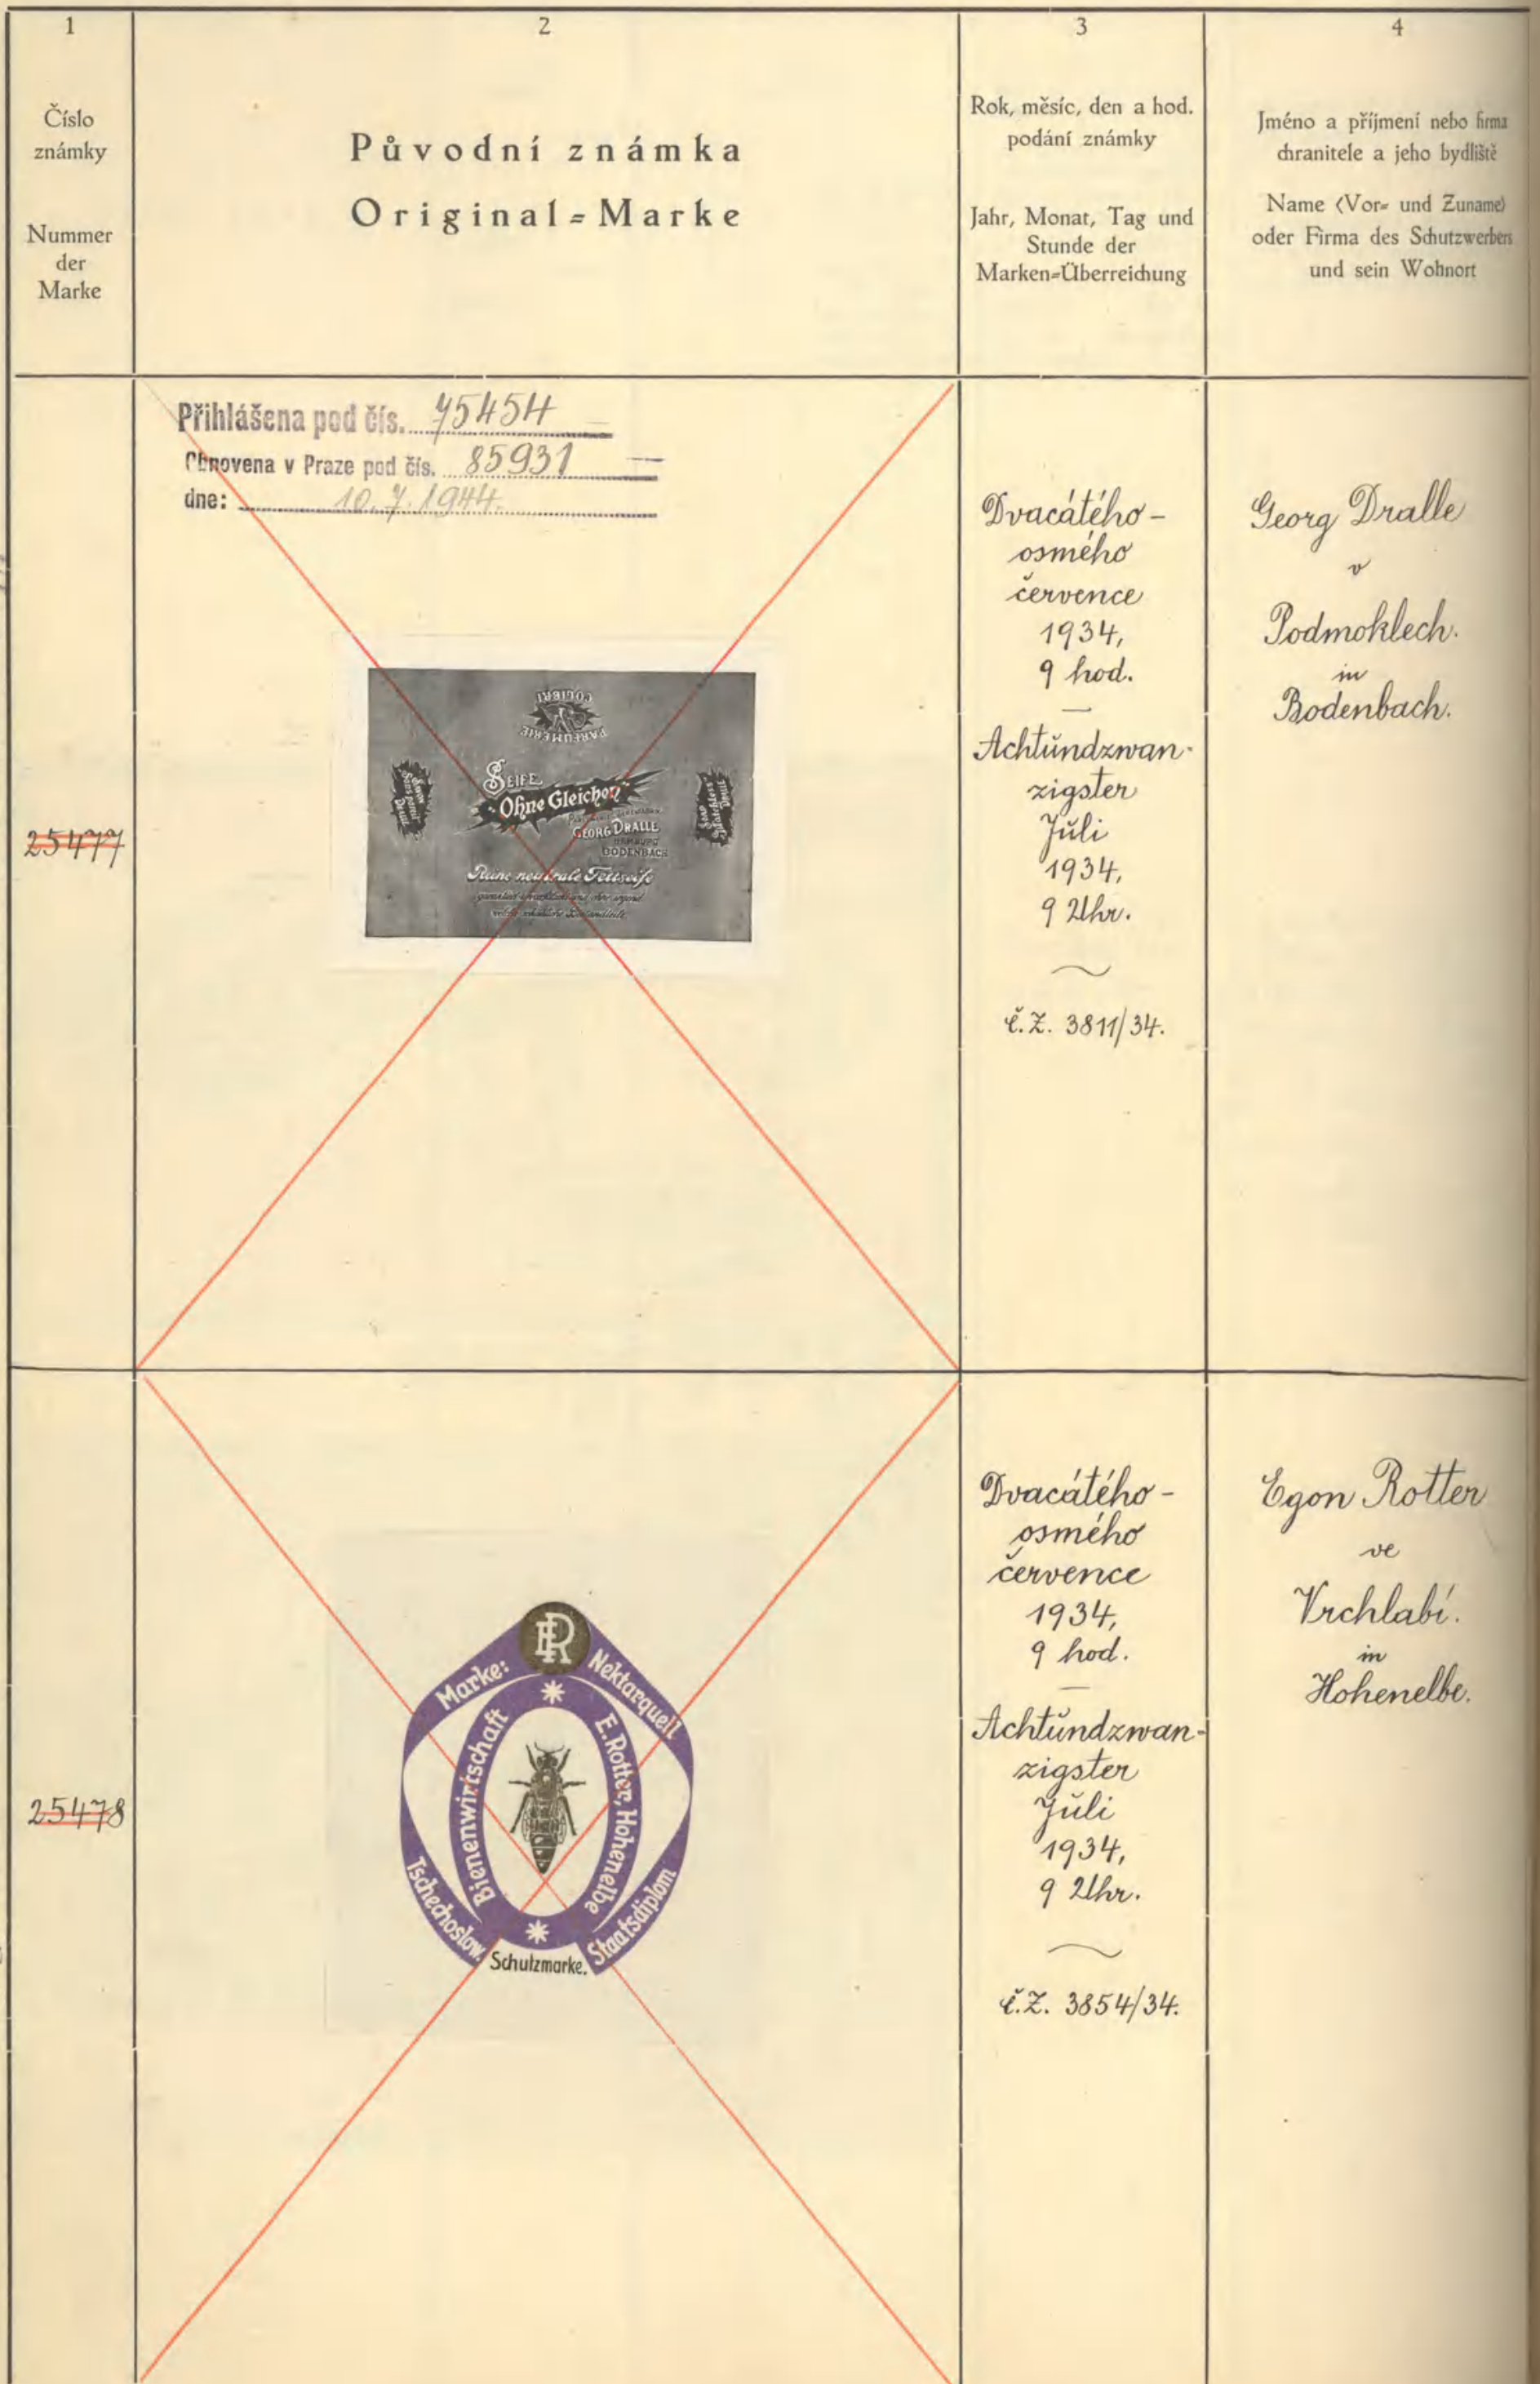 1
2
3
4
Číslo
známky
Nummer
der
Marke
Původní známka
Original=Marke
Rok, měsíc, den a hod.
podání známky
Jahr, Monat, Tag und
Stunde der
Marken=Überreichung
Jméno a příjmení nebo firma
chranitele a jeho bydliště
Name (Vor= und Zuname)
oder Firma des Schutzwerbers
und sein Wohnort
25477
Přihlášena pod čís. 75454
Obnovena v Praze pod čís. 85931
dne: 10.7.1944.
COLIBRI
PARFUMERIE
SAVON
Sans pareil
DRALLE
SEIFE
"Ohne Gleichen"
GEORG DRALLE
HAMBURG
BODENBACH
SOAP
Matchless
DRALLE
Reine neutrale Fettseife
Dvacátého-
osmého
července
1934,
9 hod.
Achtundzwan-
zigster
Juli
1934,
9 Uhr.
č.Z. 3811/34.
Georg Dralle
v
Podmoklech.
in
Bodenbach.
25478
ER
Marke: Nektarquell
Bienenwirtschaft
E. Rotter, Hohenelbe
Tschechoslow. Staatsdiplom
Schutzmarke.
Dvacátého-
osmého
července
1934,
9 hod.
Achtundzwan-
zigster
Juli
1934,
9 Uhr.
č.Z. 3854/34.
Egon Rotter
ve
Vrchlabí.
in
Hohenelbe.